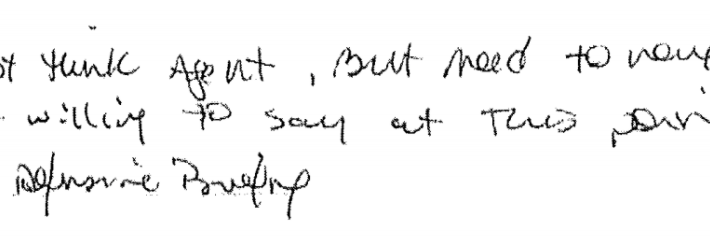 think Agent, But need to
willing to say at This
Defensive Briefing